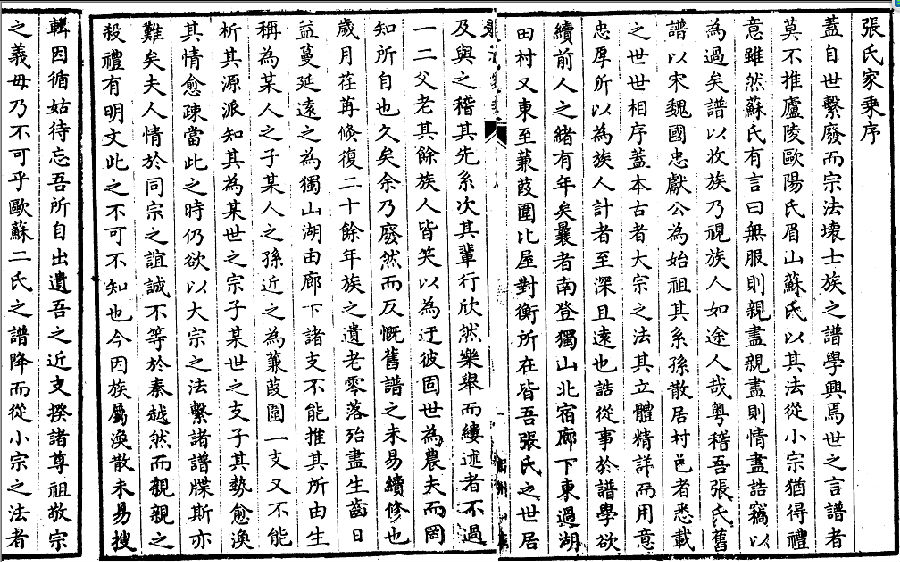 張氏家乘序
蓋自世繫廢而宗法壞士族之譜學興焉世之言譜者
莫不推廬陵歐陽氏眉山蘇氏以其法從小宗猶得禮
意雖然蘇氏有言曰無服則親盡親盡則情盡誥竊以
為過矣譜以收族乃視族人如途人哉粵稽吾張氏舊
譜以宋魏國忠獻公為始祖其系孫散居村邑者悉載
之世世相序蓋本古者大宗之法其立體精詳而用意
忠厚所以為族人計者至深且遠也誥從事於譜學欲
續前人之緒有年矣曩者南登獨山北宿廊下東過湖
田村又東至蒹葭圍比屋對衡所在皆吾張氏之世居
及與之稽其先系次其輩行欣然樂舉而縷述者不過
一二父老其餘族人皆笑以為迂彼固世為農夫而罔
知所自也久矣余乃廢然而反慨舊譜之未易續修也
歲月荏苒倏復二十餘年族之遺老零落殆盡生齒日
益蔓延遠之為獨山湖由廊下諸支不能推其所由生
稱為某人之子某人之孫近之為蒹葭圍一支又不能
析其源派知其為某世之宗子某世之支子其勢愈渙
其情愈疎當此之時仍欲以大宗之法繫諸譜牒斯亦
難矣夫人情於同宗之誼誠不等於秦越然而親親之
殺禮有明文此之不可不知也今因族屬渙散未易搜
輯因循姑待忘吾所自出遺吾之近支揆諸尊祖敬宗
之義毋乃不可乎歐蘇二氏之譜降而從小宗之法者